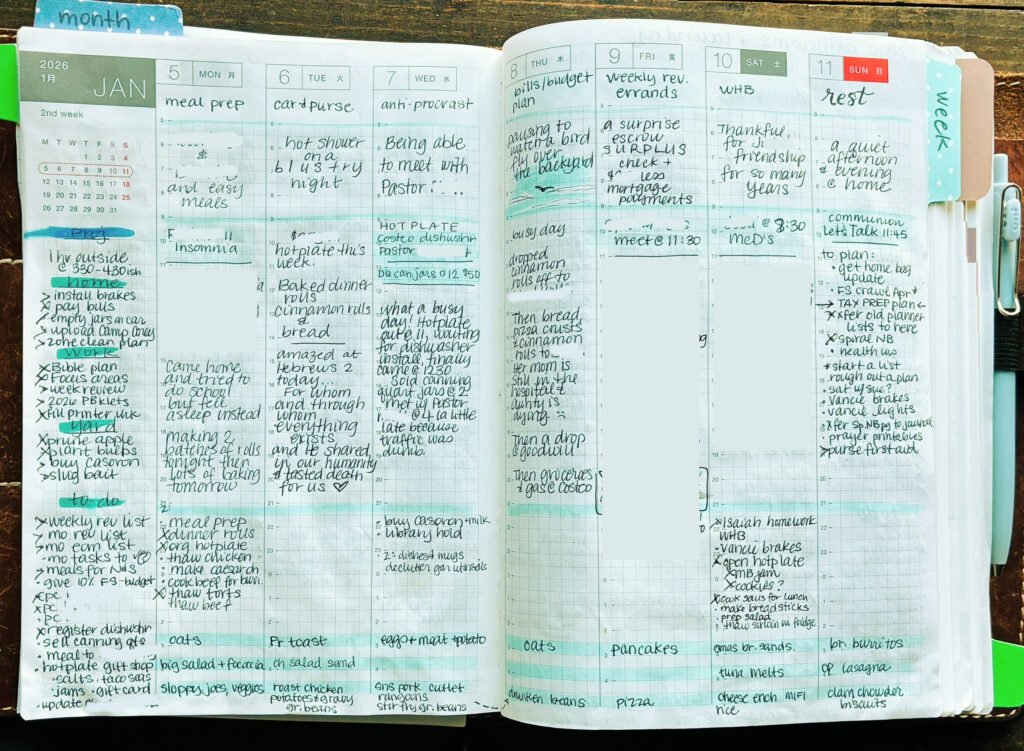 month
2026
1月
JAN
2nd week
M T W T F S S
1 2 3 4
5 6 7 8 9 10 11
12 13 14 15 16 17 18
19 20 21 22 23 24 25
26 27 28 29 30 31
proj
1 hr outside
@ 330-430ish
home
> install brakes
x pay bills
> empty jars in car
> upload Camp Casey
> zone clean plan
work
x Bible plan
x Focus areas
> week review
> 2026 PB lists
x fill printer ink
yard
x prune apple
x plant bulbs
> buy casoron
> slug bait
to-do
> weekly rev list
> mo rev list
> mo eom list
· mo tasks to
> meals for N+S
· give 10% FS-budget
x pc
x pc
· pc
x register dishwshr
> sell canning qts
· meal to
· hotplate gift shop
· salts · taco seas
· jams · gift card
· update
5 MON 月
meal prep
&
and easy
meals
Insomnia
Came home
and tried to
do school
but fell
asleep instead
making 2
batches of rolls
tonight then
lots of baking
tomorrow
· meal prep
x dinner rolls
x org hotplate
· thaw chicken
· make caesar dr
· cook beef for burri.
x thaw torts
thaw beef
oats
big salad + focaccia
sloppy joes, veggies
6 TUE 火
car + purse
hot shower
on a
blustry
night
hotplate this
week.
Baked dinner
rolls
cinnamon rolls
&
bread
amazed at
Hebrews 2
today...
For whom
and through
whom
everything
exists
and He shared
in our humanity
& tasted death
for us ♡
Fr toast
ch salad sand
roast chicken
potatoes + gravy
gr. beans
7 WED 水
anti-procrast
Being able
to meet with
Pastor
HOT PLATE
costco dishwshr
Pastor
big can jars @ 12 $50
what a busy
day! Hotplate
out @ 11, waiting
for dishwasher
install, finally
came @ 1230
Sold canning
quart jars @ 2
met w/ Pastor
@ 4 (a little
late because
traffic was
dumb.
· buy casoron + milk
· library hold
2: dishes + mugs
declutter
eggo + meat + potato
pork cutlet
rangoons
stir fry gr. beans
8 THU 木
bills/budget
plan
pausing to
watch a bird
fly over
the backyard
busy day
dropped
cinnamon
rolls off to
Then bread,
pizza crusts
& cinnamon
rolls to
Her mom is
still in the
hospital &
aunty is
dying :(
Then a drop
@ goodwill
Then groceries
+ gas @ costco
oats
chicken beans
9 FRI 金
weekly rev.
errands
a surprise
escrow
SURPLUS
check +
$ less
mortgage
payments
meet @ 11:30
pancakes
pizza
10 SAT 土
WHB
Thankful,
for Ji
friendship
for so many
years
@ 8:30
McD's
x Isaiah homework
WHB
· Vancie brakes
x open hotplate
x MB jam
x cookies?
x cook saus for lunch
· make breadsticks
· prep salad
· thaw sirloin in fridge
gmas br. sands.
tuna melts
cheese ench MiFi
rice
11 SUN 日
rest
a quiet
afternoon
& evening
@ home
communion
Let's Talk 11:45
to plan:
· get home bag
update
· FS crawl Apr*
→ TAX PREP plan ←
x xfer old planner
lists to here
x spiral NB
· health ins
· start a list
· rough out a plan
· sat w/ sue?
· Vancie brakes
· vancie lights
x xfer sp. NB pg to journal
· prayer printables
> purse first aid
br. burritos
lasagna
clam chowder
biscuits
week